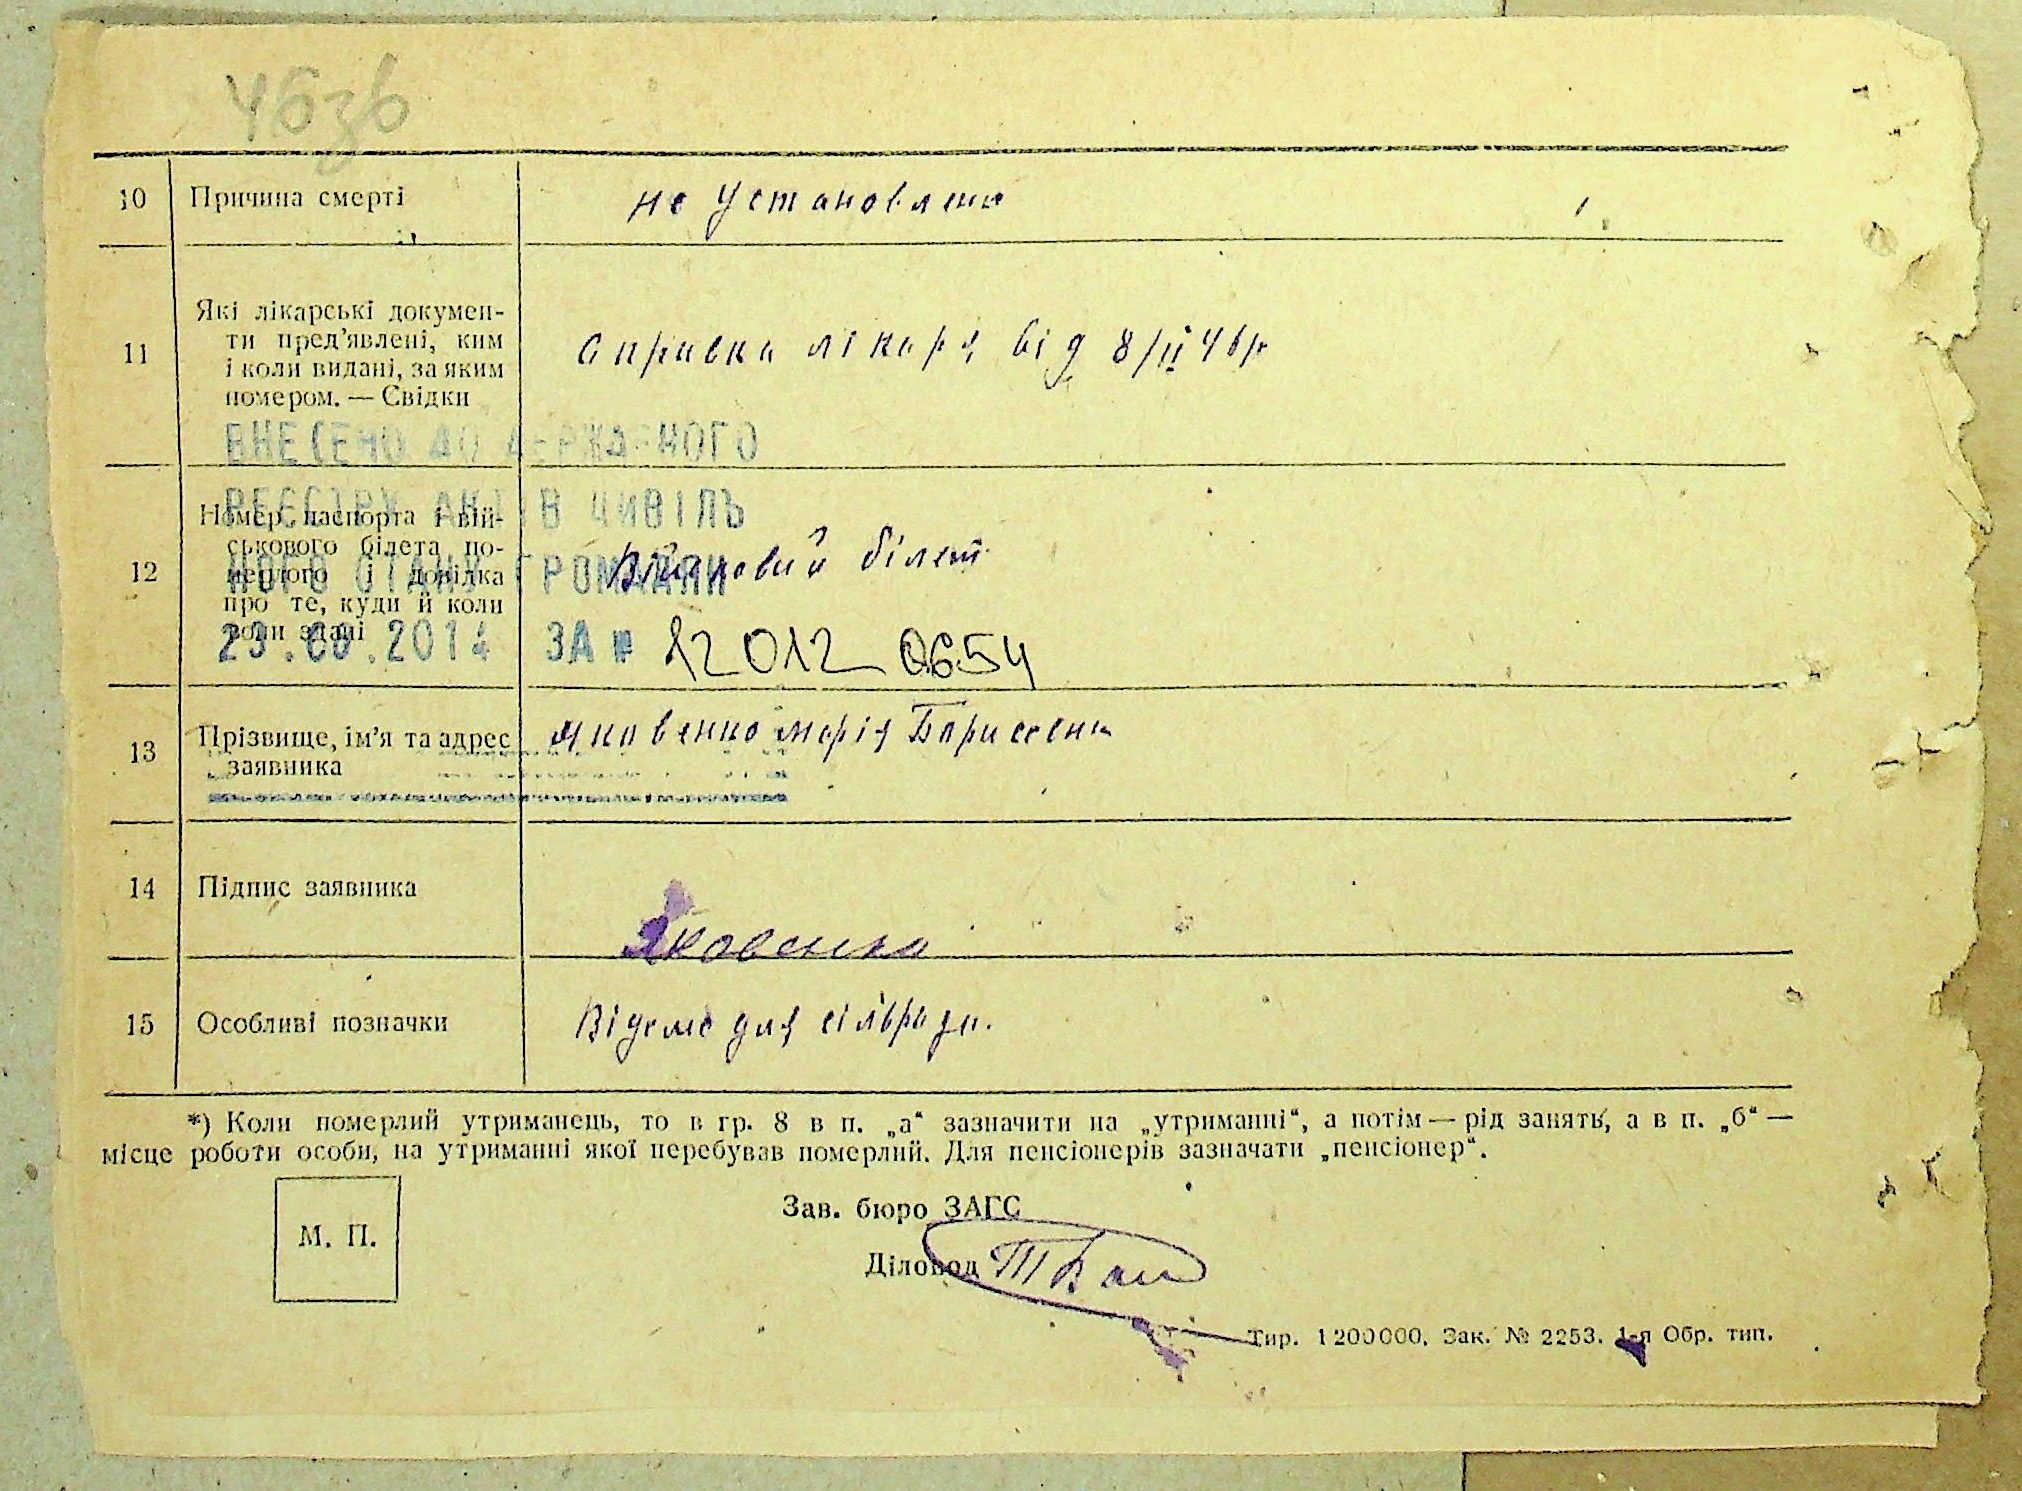 46зв
10 Причина смерті не установлена
11 Які лікарські докумен-
ти пред’явлені, ким
і коли видані, за яким
номером. — Свідки
Справка лікаря від 8/ІІ 46р
ВНЕСЕНО ДО ДЕРЖАВНОГО
РЕЄСТРУ АКТІВ ЦИВІЛЬ
НОГО СТАНУ ГРОМАДЯН
12 Номер паспорта і вій-
ськового білета по-
мерлого і довідка
про те, куди й коли
вони здані
білет
2014 ЗА № 12012 0654
13 Прізвище, ім’я та адрес
заявника
Яковенко Марія Борисовна
14 Підпис заявника
Яковенко
15 Особливі позначки для сільради.
*) Коли померлий утриманець, то в гр. 8 в п. „а“ зазначити на „утриманні“, а потім — рід занять, а в п. „б“ —
місце роботи особи, на утриманні якої перебував померлий. Для пенсіонерів зазначати „пенсіонер“.
М. П.
Зав. бюро ЗАГС
Діловод
Тир. 1200000. Зак. № 2253. 1-я Обр. тип.